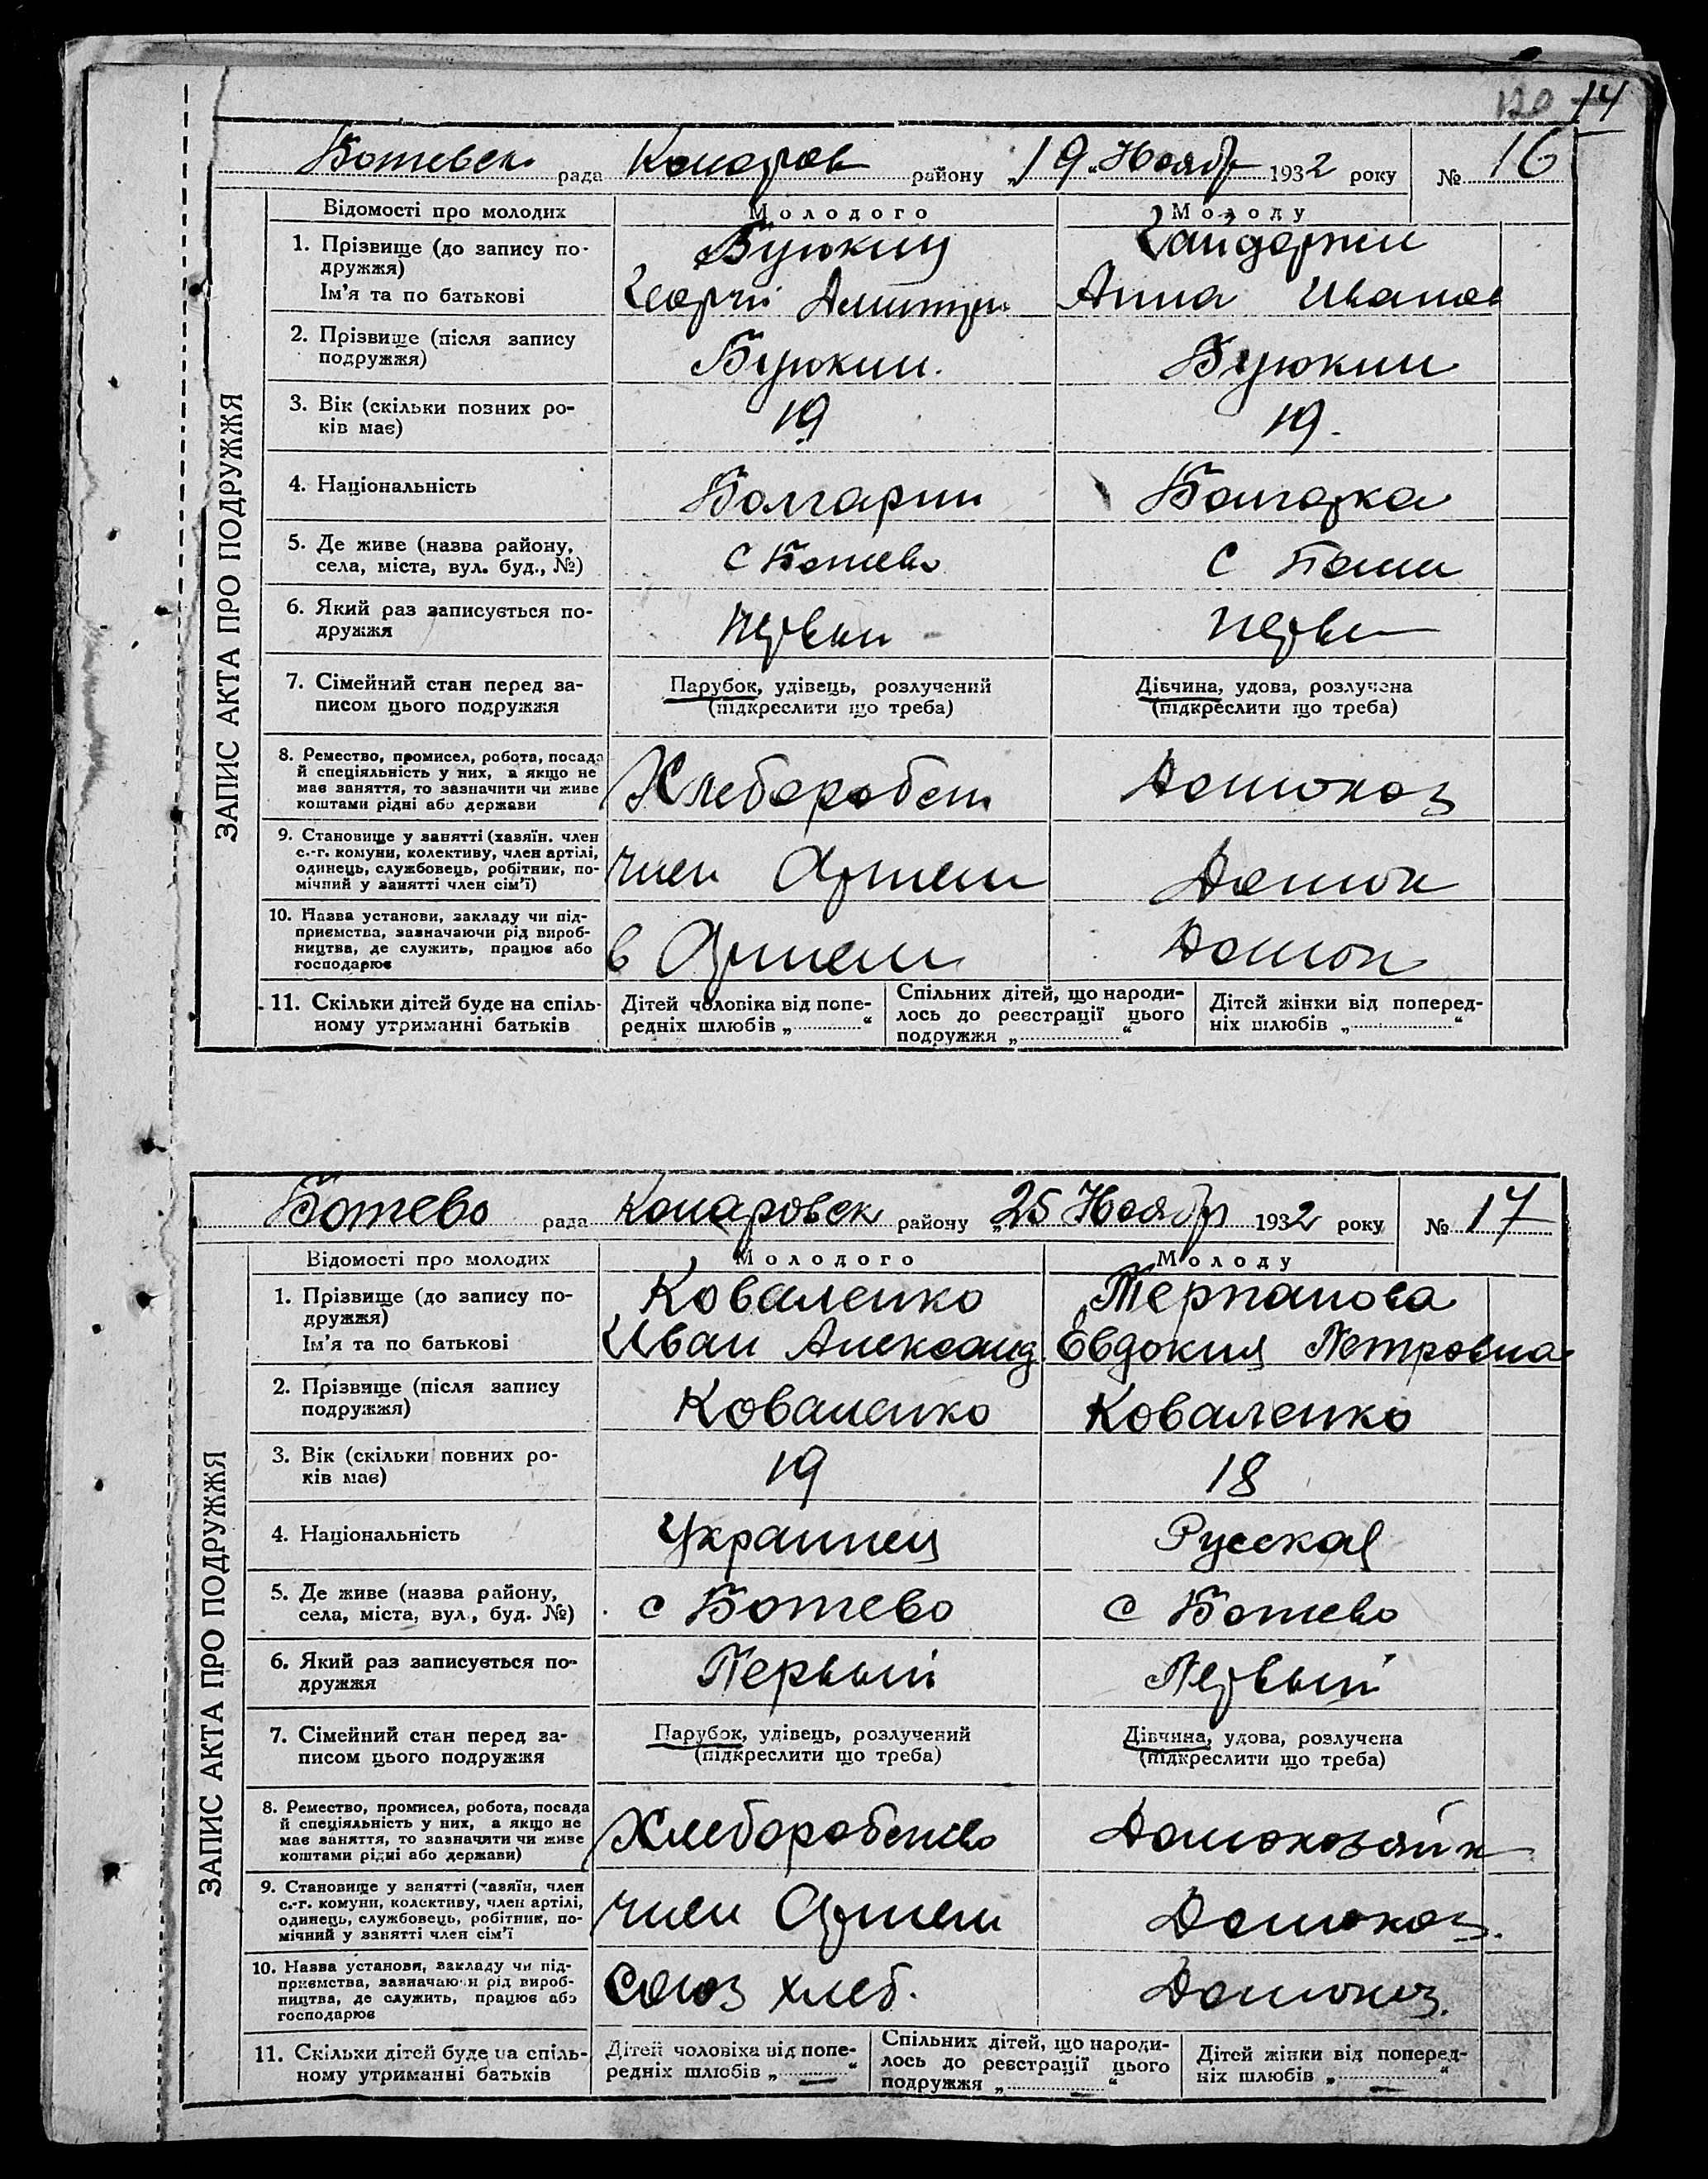 120 14
Ботевск рада Коларов району „19 Ноябр 1932 року № 16
ЗАПИС АКТА ПРО ПОДРУЖЖЯ
Відомості про молодих Молодого Молоду
1. Прізвище (до запису по-
дружжя)
Ім'я та по батькові
Гайдаржи
Георгій Дмитри
Анна Иванов
2. Прізвище (після запису
подружжя)
Буюкли.
Буюкли
3. Вік (скільки повних ро-
ків має)
19
19.
4. Національність
Болгарин
Болгарка
5. Де живе (назва району,
села, міста, вул. буд., №)
с Ботево
с Боте
6. Який раз записується по-
дружжя
Первы
Перве
7. Сімейний стан перед за-
писом цього подружжя
Парубок, удівець, розлучений
(підкреслити що треба)
Дівчина, удова, розлучена
(підкреслити що треба)
8. Ремество, промисел, робота, посада
й спеціяльність у них, а якщо не
має заняття, то зазначити чи живе
коштами рідні або держави
Хлебороб
Домохоз
9. Становище у занятті (хазяїн. член
с.-г. комуни, колективу, член артілі,
одинець, службовець, робітник, по-
мічний у занятті член сім'ї)
член Артели
Домох
10. Назва установи, закладу чи під-
приємства, зазначаючи рід вироб-
ництва, де служить, працює або
господарює
в Артели
Домох
11. Скільки дітей буде на спіль-
ному утриманні батьків
Дітей чоловіка від попе-
редніх шлюбів „ “
Спільних дітей, що народи-
лось до реєстрації цього
подружжя „ “
Дітей жінки від поперед-
ніх шлюбів „ “
Ботево рада Коларовск району „25 Ноябр 1932 року № 17
ЗАПИС АКТА ПРО ПОДРУЖЖЯ
Відомості про молодих Молодого Молоду
1. Прізвище (до запису по-
дружжя)
Ім'я та по батькові
Коваленко
Иван Александ.
Терпанова
Евдокия Петровна
2. Прізвище (після запису
подружжя)
Коваленко
Коваленко
3. Вік (скільки повних ро-
ків має)
19
18
4. Національність
Украинец
Русская
5. Де живе (назва району,
села, міста, вул., буд. №)
с Ботево
с Ботево
6. Який раз записується по-
дружжя
Первый
Первый
7. Сімейний стан перед за-
писом цього подружжя
Парубок, удівець, розлучений
(підкреслити що треба)
Дівчина, удова, розлучена
(підкреслити що треба)
8. Ремество, промисел, робота, посада
й спеціяльність у них, а якщо не
має заняття, то зазначити чи живе
коштами рідні або держави)
Хлеборобство
Домохозяйк
9. Становище у занятті (хазяїн, член
с.-г. комуни, колективу, член артілі,
одинець, службовець, робітник, по-
мічний у занятті член сім'ї
член Артели
Домохоз.
10. Назва установи, закладу чи під-
приємства, зазначаючи рід вироб-
ництва, де служить, працює або
господарює
Союз хлеб.
Домохоз.
11. Скільки дітей буде на спіль-
ному утриманні батьків
Дітей чоловіка від попе-
редніх шлюбів „ — “
Спільних дітей, що народи-
лось до реєстрації цього
подружжя „ — “
Дітей жінки від поперед-
ніх шлюбів „ — “